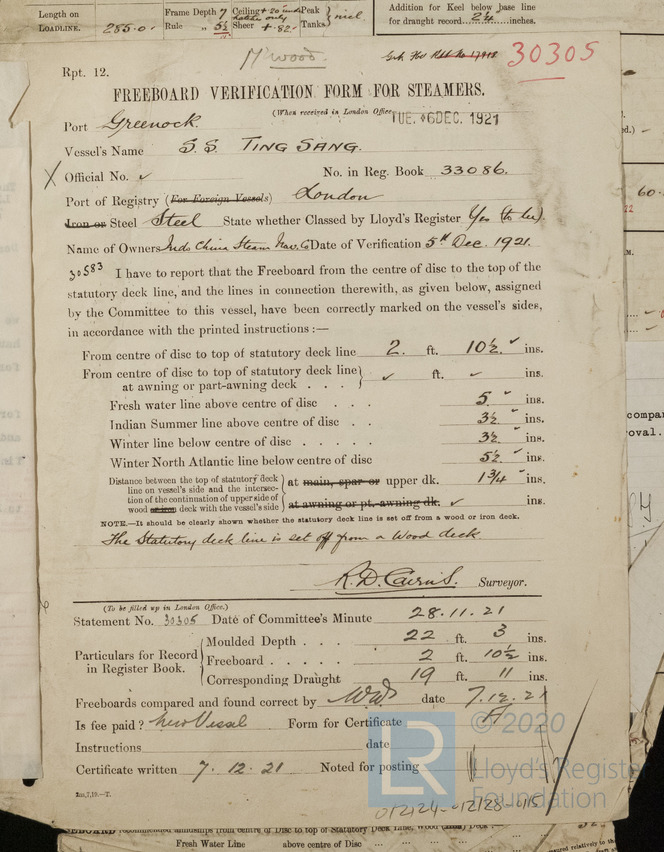 Length on
LOADLINE. 285.0.
Frame Depth 7
Rule „ 5½
Ceiling
Sheer + .82
Peak
Tanks
Addition for Keel below base line
for draught record 2¼ inches.
M'Wood.
30305
Rpt. 12.
FREEBOARD VERIFICATION FORM FOR STEAMERS.
(When received in London Office TUE. 6 DEC. 1921
Port Greenock.
Vessel's Name S.S. TING SANG.
X Official No. ✓ No. in Reg. Book 33086.
Port of Registry (For Foreign Vessels) London
Iron or Steel Steel State whether Classed by Lloyd's Register Yes (to be).
Name of Owners Indo China Steam Nav. Co Date of Verification 5th Dec. 1921.
30583 I have to report that the Freeboard from the centre of disc to the top of the
statutory deck line, and the lines in connection therewith, as given below, assigned
by the Committee to this vessel, have been correctly marked on the vessel's sides,
in accordance with the printed instructions :—
From centre of disc to top of statutory deck line 2. ft. 10½ ✓ ins.
From centre of disc to top of statutory deck line
at awning or part-awning deck . . . ✓ ft. ✓ ins.
Fresh water line above centre of disc . . . 5 ✓ ins.
Indian Summer line above centre of disc . . 3½ ✓ ins.
Winter line below centre of disc . . . . . 3½ ✓ ins.
Winter North Atlantic line below centre of disc 5½ ✓ ins.
Distance between the top of statutory deck
line on vessel's side and the intersec-
tion of the continuation of upper side of
wood or iron deck with the vessel's side
at main, spar or upper dk. 1¾ ✓ ins.
at awning or pt. awning dk. ✓ ins.
NOTE.—It should be clearly shown whether the statutory deck line is set off from a wood or iron deck.
The Statutory deck line is set off from a Wood deck
R.D. Cairns. Surveyor.
(To be filled up in London Office.)
Statement No. 30305 Date of Committee's Minute 28.11.21
Particulars for Record
in Register Book.
Moulded Depth . . . 22 ft. 3 ins.
Freeboard . . . . . 2 ft. 10½ ins.
Corresponding Draught 19 ft. 11 ins.
Freeboards compared and found correct by date 7.12.21
Is fee paid? New Vessel Form for Certificate
Instructions date
Certificate written 7.12.21 Noted for posting
© 2020
LR
Lloyd's Register
Foundation
012124-012128-0151
Fresh Water Line above centre of Disc